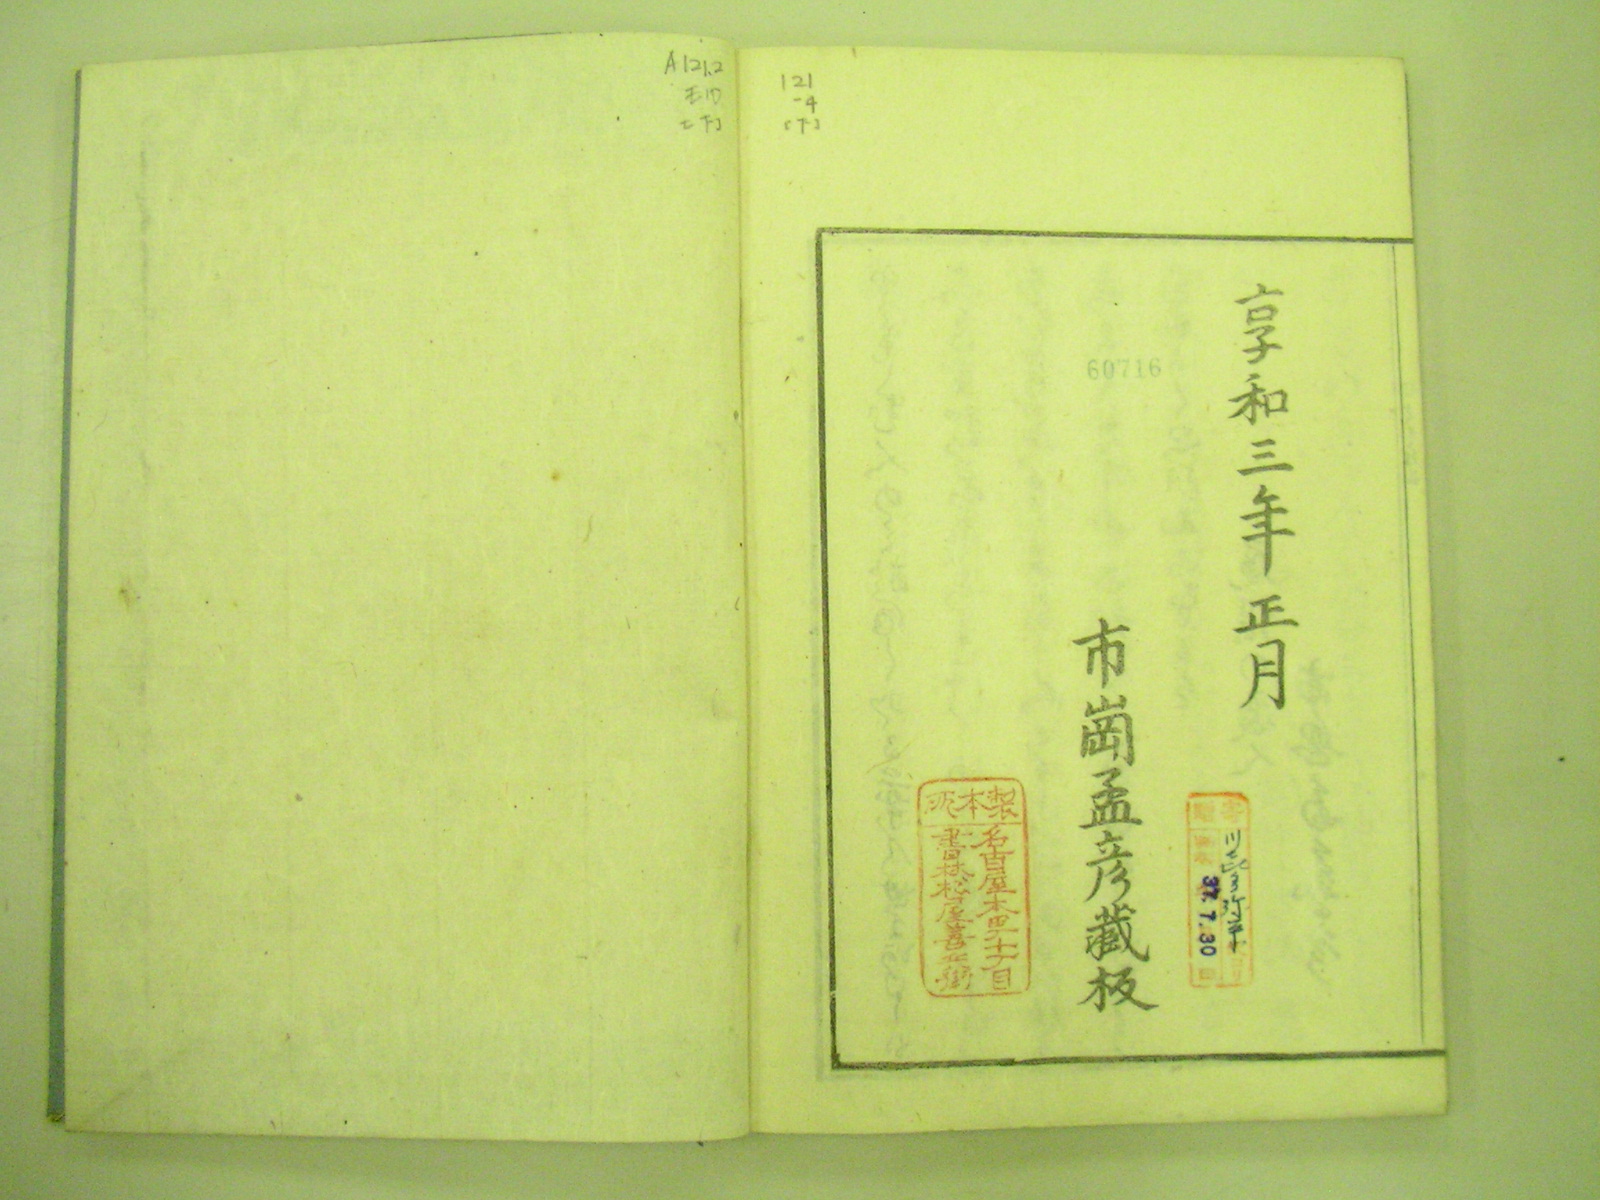 享和三年正月
市崗孟彦藏板
製本所
名古屋本町十丁目
書林松屋善兵衛
60716
寄贈
37.7.30
121
-4
[下]
A121.2
[下]